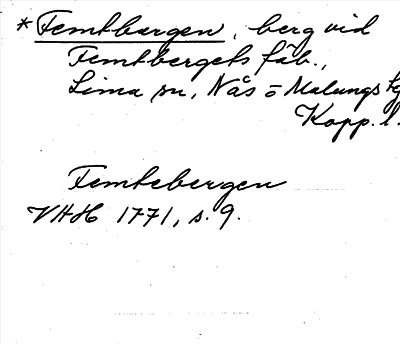 *Femtbergen, berg vid
Femtbergets fäb.,
Lima sn, Nås o Malungs
Kopp. l.
Femtebergen
VHH 1771, s. 9.